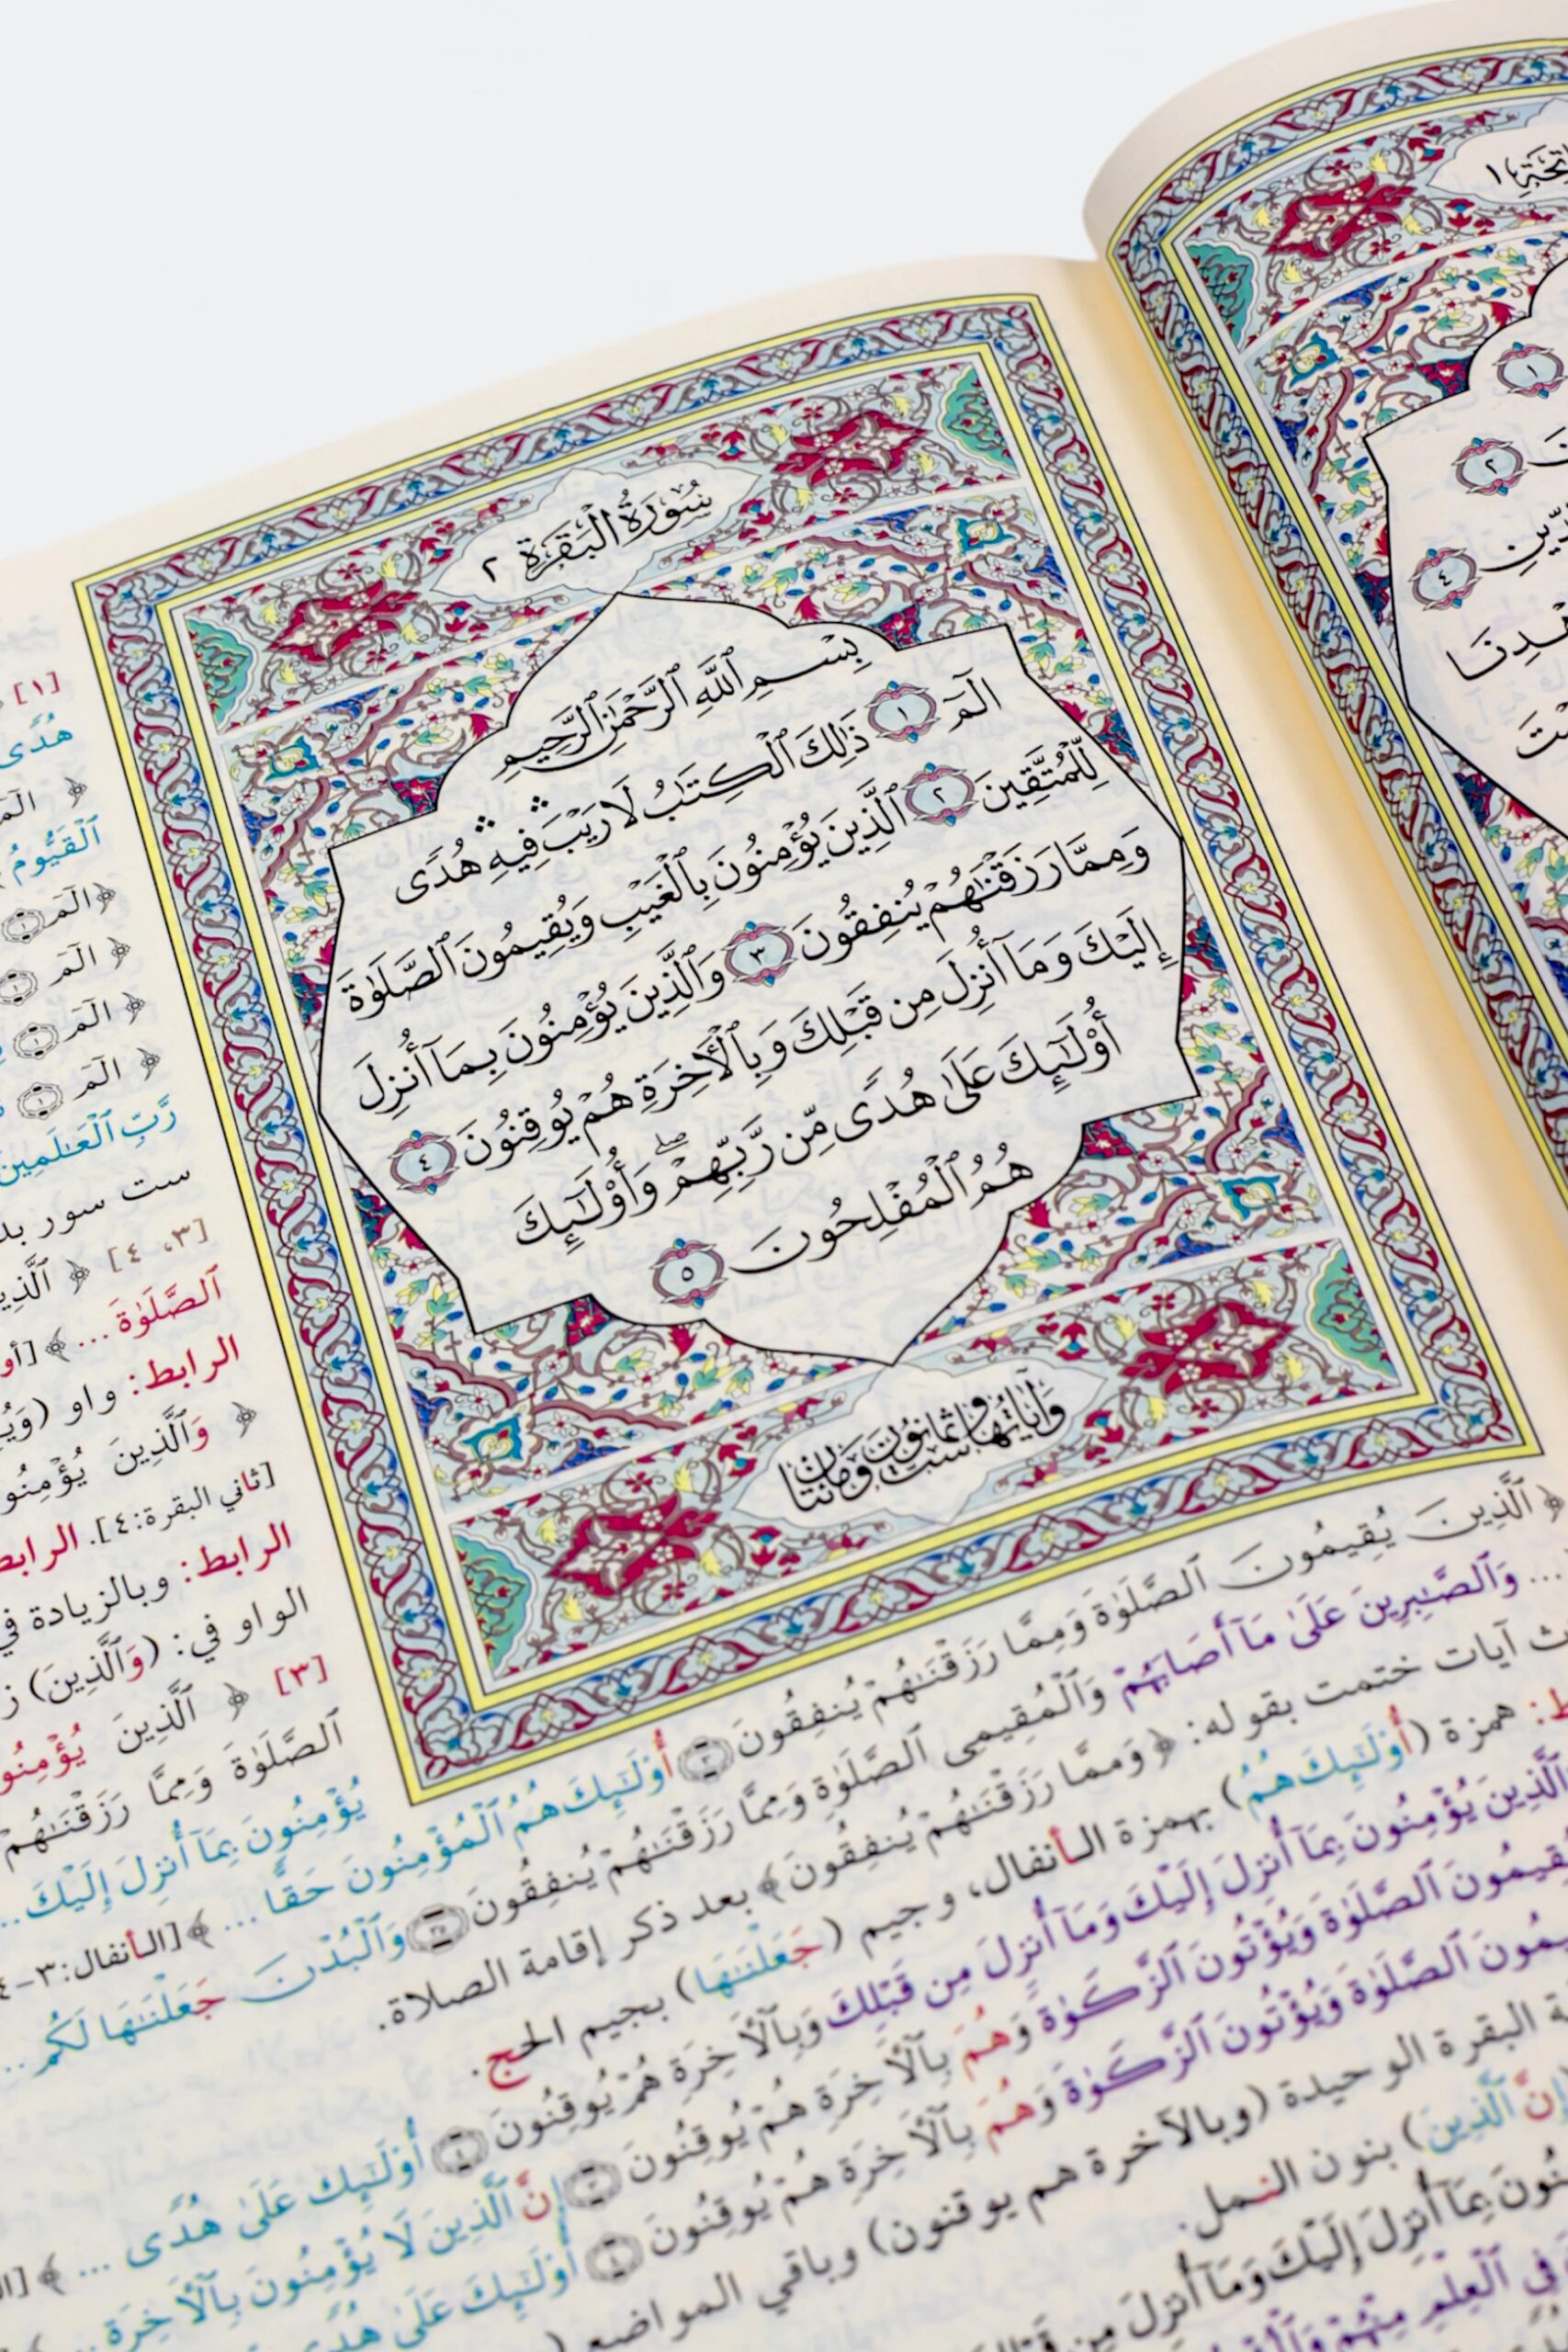 سُورَةُ الْبَقَرَةِ ٢
بِسْمِ ٱللَّهِ ٱلرَّحْمَٰنِ ٱلرَّحِيمِ
الٓمٓ ١ ذَٰلِكَ ٱلْكِتَٰبُ لَا رَيْبَ ۛ فِيهِ ۛ هُدًى
لِّلْمُتَّقِينَ ٢ ٱلَّذِينَ يُؤْمِنُونَ بِٱلْغَيْبِ وَيُقِيمُونَ ٱلصَّلَوٰةَ
وَمِمَّا رَزَقْنَٰهُمْ يُنفِقُونَ ٣ وَٱلَّذِينَ يُؤْمِنُونَ بِمَآ أُنزِلَ
إِلَيْكَ وَمَآ أُنزِلَ مِن قَبْلِكَ وَبِٱلْأَخِرَةِ هُمْ يُوقِنُونَ ٤
أُوْلَٰٓئِكَ عَلَىٰ هُدًى مِّن رَّبِّهِمْ ۖ وَأُوْلَٰٓئِكَ
هُمُ ٱلْمُفْلِحُونَ ٥
وَآيَاتُهَا سِتٌّ وَثَمَانُونَ وَمِائَتَانِ
١
١
٢
ٱلدِّينِ ٤
[١]
هُدًى
﴿ الٓمٓ
ٱلْقَيُّومُ
﴿ الٓمٓ ١
﴿ الٓمٓ ١
﴿ الٓمٓ ١
﴿ الٓمٓ ١
رَّبِّ ٱلْعَٰلَمِينَ
ست سور
[٣، ٤] ﴿
ٱلصَّلَوٰةَ ... ﴾
الرابط: واو
﴿ وَٱلَّذِينَ يُؤْمِنُونَ
[ثاني البقرة:٤]. الرابط
الرابط: وبالزيادة في
الواو في: (وَٱلَّذِينَ)
[٣] ﴿ ٱلَّذِينَ يُؤْمِنُونَ
ٱلصَّلَوٰةَ وَمِمَّا رَزَقْنَٰهُمْ
يُؤْمِنُونَ بِمَآ أُنزِلَ إِلَيْكَ...
﴿ ٱلَّذِينَ يُقِيمُونَ ٱلصَّلَوٰةَ وَمِمَّا رَزَقْنَٰهُمْ يُنفِقُونَ ٣ أُوْلَٰٓئِكَ هُمُ ٱلْمُؤْمِنُونَ حَقًّا ... ﴾ [الأنفال:٣-٤
... وَٱلصَّٰبِرِينَ عَلَىٰ مَآ أَصَابَهُمْ وَٱلْمُقِيمِى ٱلصَّلَوٰةِ وَمِمَّا رَزَقْنَٰهُمْ يُنفِقُونَ ٣٥ وَٱلْبُدْنَ جَعَلْنَٰهَا لَكُم ...
آيات ختمت بقوله: ﴿ وَمِمَّا رَزَقْنَٰهُمْ يُنفِقُونَ ﴾ بعد ذكر إقامة الصلاة.
همزة (أُوْلَٰٓئِكَ هُمُ) بهمزة الأنفال، وجيم (جَعَلْنَٰهَا) بجيم الحج.
ٱلَّذِينَ يُؤْمِنُونَ بِمَآ أُنزِلَ إِلَيْكَ وَمَآ أُنزِلَ مِن قَبْلِكَ وَبِٱلْأَخِرَةِ هُمْ يُوقِنُونَ ٤ أُوْلَٰٓئِكَ عَلَىٰ هُدًى ... ﴾
يُقِيمُونَ ٱلصَّلَوٰةَ وَيُؤْتُونَ ٱلزَّكَوٰةَ وَهُم بِٱلْأَخِرَةِ هُمْ يُوقِنُونَ ٣ إِنَّ ٱلَّذِينَ لَا يُؤْمِنُونَ بِٱلْأَخِرَةِ ...
يُقِيمُونَ ٱلصَّلَوٰةَ وَيُؤْتُونَ ٱلزَّكَوٰةَ وَهُم بِٱلْأَخِرَةِ هُمْ يُوقِنُونَ ٤ أُوْلَٰٓئِكَ عَلَىٰ هُدًى
البقرة الوحيدة (وبالآخرة هم يوقنون) وباقي المواضع
(إِنَّ ٱلَّذِينَ) بنون النمل.
بِمَآ أُنزِلَ إِلَيْكَ وَمَآ أُنزِلَ مِن
فِي ٱلْعِلْمِ مِنْهُمْ